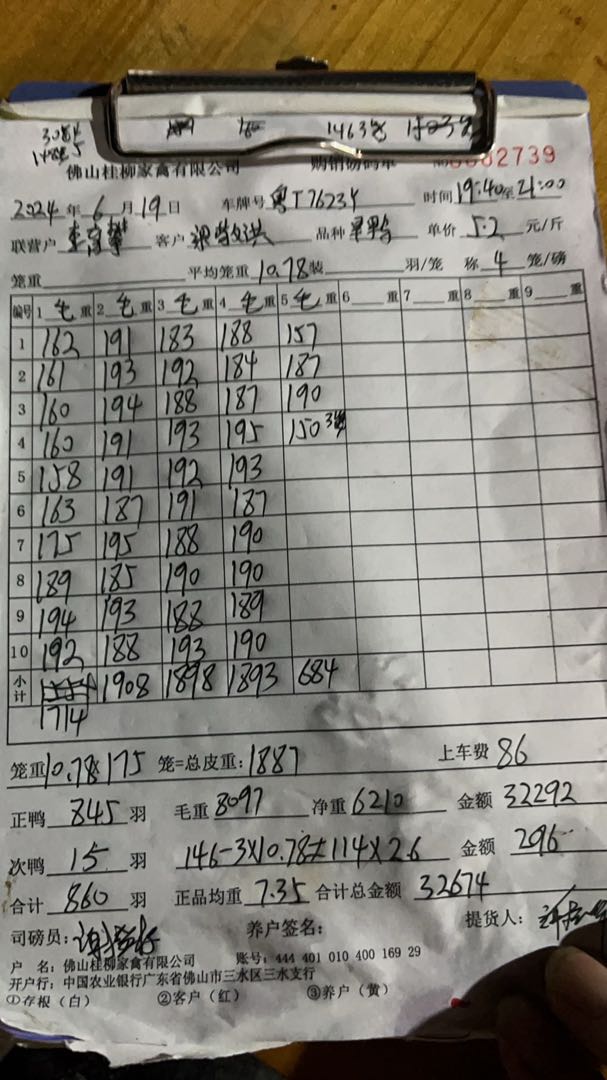 3084
1463 1503
佛山桂柳家禽有限公司 购销磅码单 №0002739
2024年6月19日 车牌号粤T7623Y 时间19:40至21:00
联营户 客户 品种 单价5.2元/斤
笼重 平均笼重10.78装 羽/笼 称4笼/磅
编号 1毛重 2毛重 3毛重 4毛重 5毛重 6重 7重 8重 9重
1 162 191 183 188 157
2 161 193 192 184 187
3 160 194 188 187 190
4 160 191 193 195 150 3笼
5 158 191 192 193
6 163 187 191 187
7 175 195 188 190
8 189 185 190 190
9 194 193 188 189
10 192 188 193 190
小计 1908 1898 1893 684
1714
笼重10.78×175笼=总皮重:1887 上车费86
正鸭845羽 毛重8097 净重6210 金额32292
次鸭15羽 146-3×10.78=114×2.6 金额296
合计860羽 正品均重7.35 合计总金额32674
司磅员: 养户签名: 提货人:
户 名:佛山桂柳家禽有限公司 账号:444 401 010 400 169 29
开户行:中国农业银行广东省佛山市三水区三水支行
①存根(白) ②客户(红) ③养户(黄)